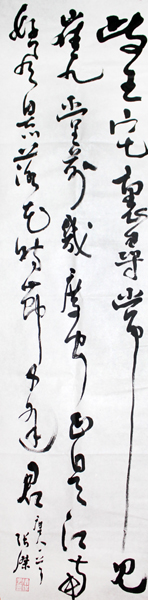 岐王宅裏尋常見
崔九堂前幾度聞正是江南
好風景落花時節又逢君